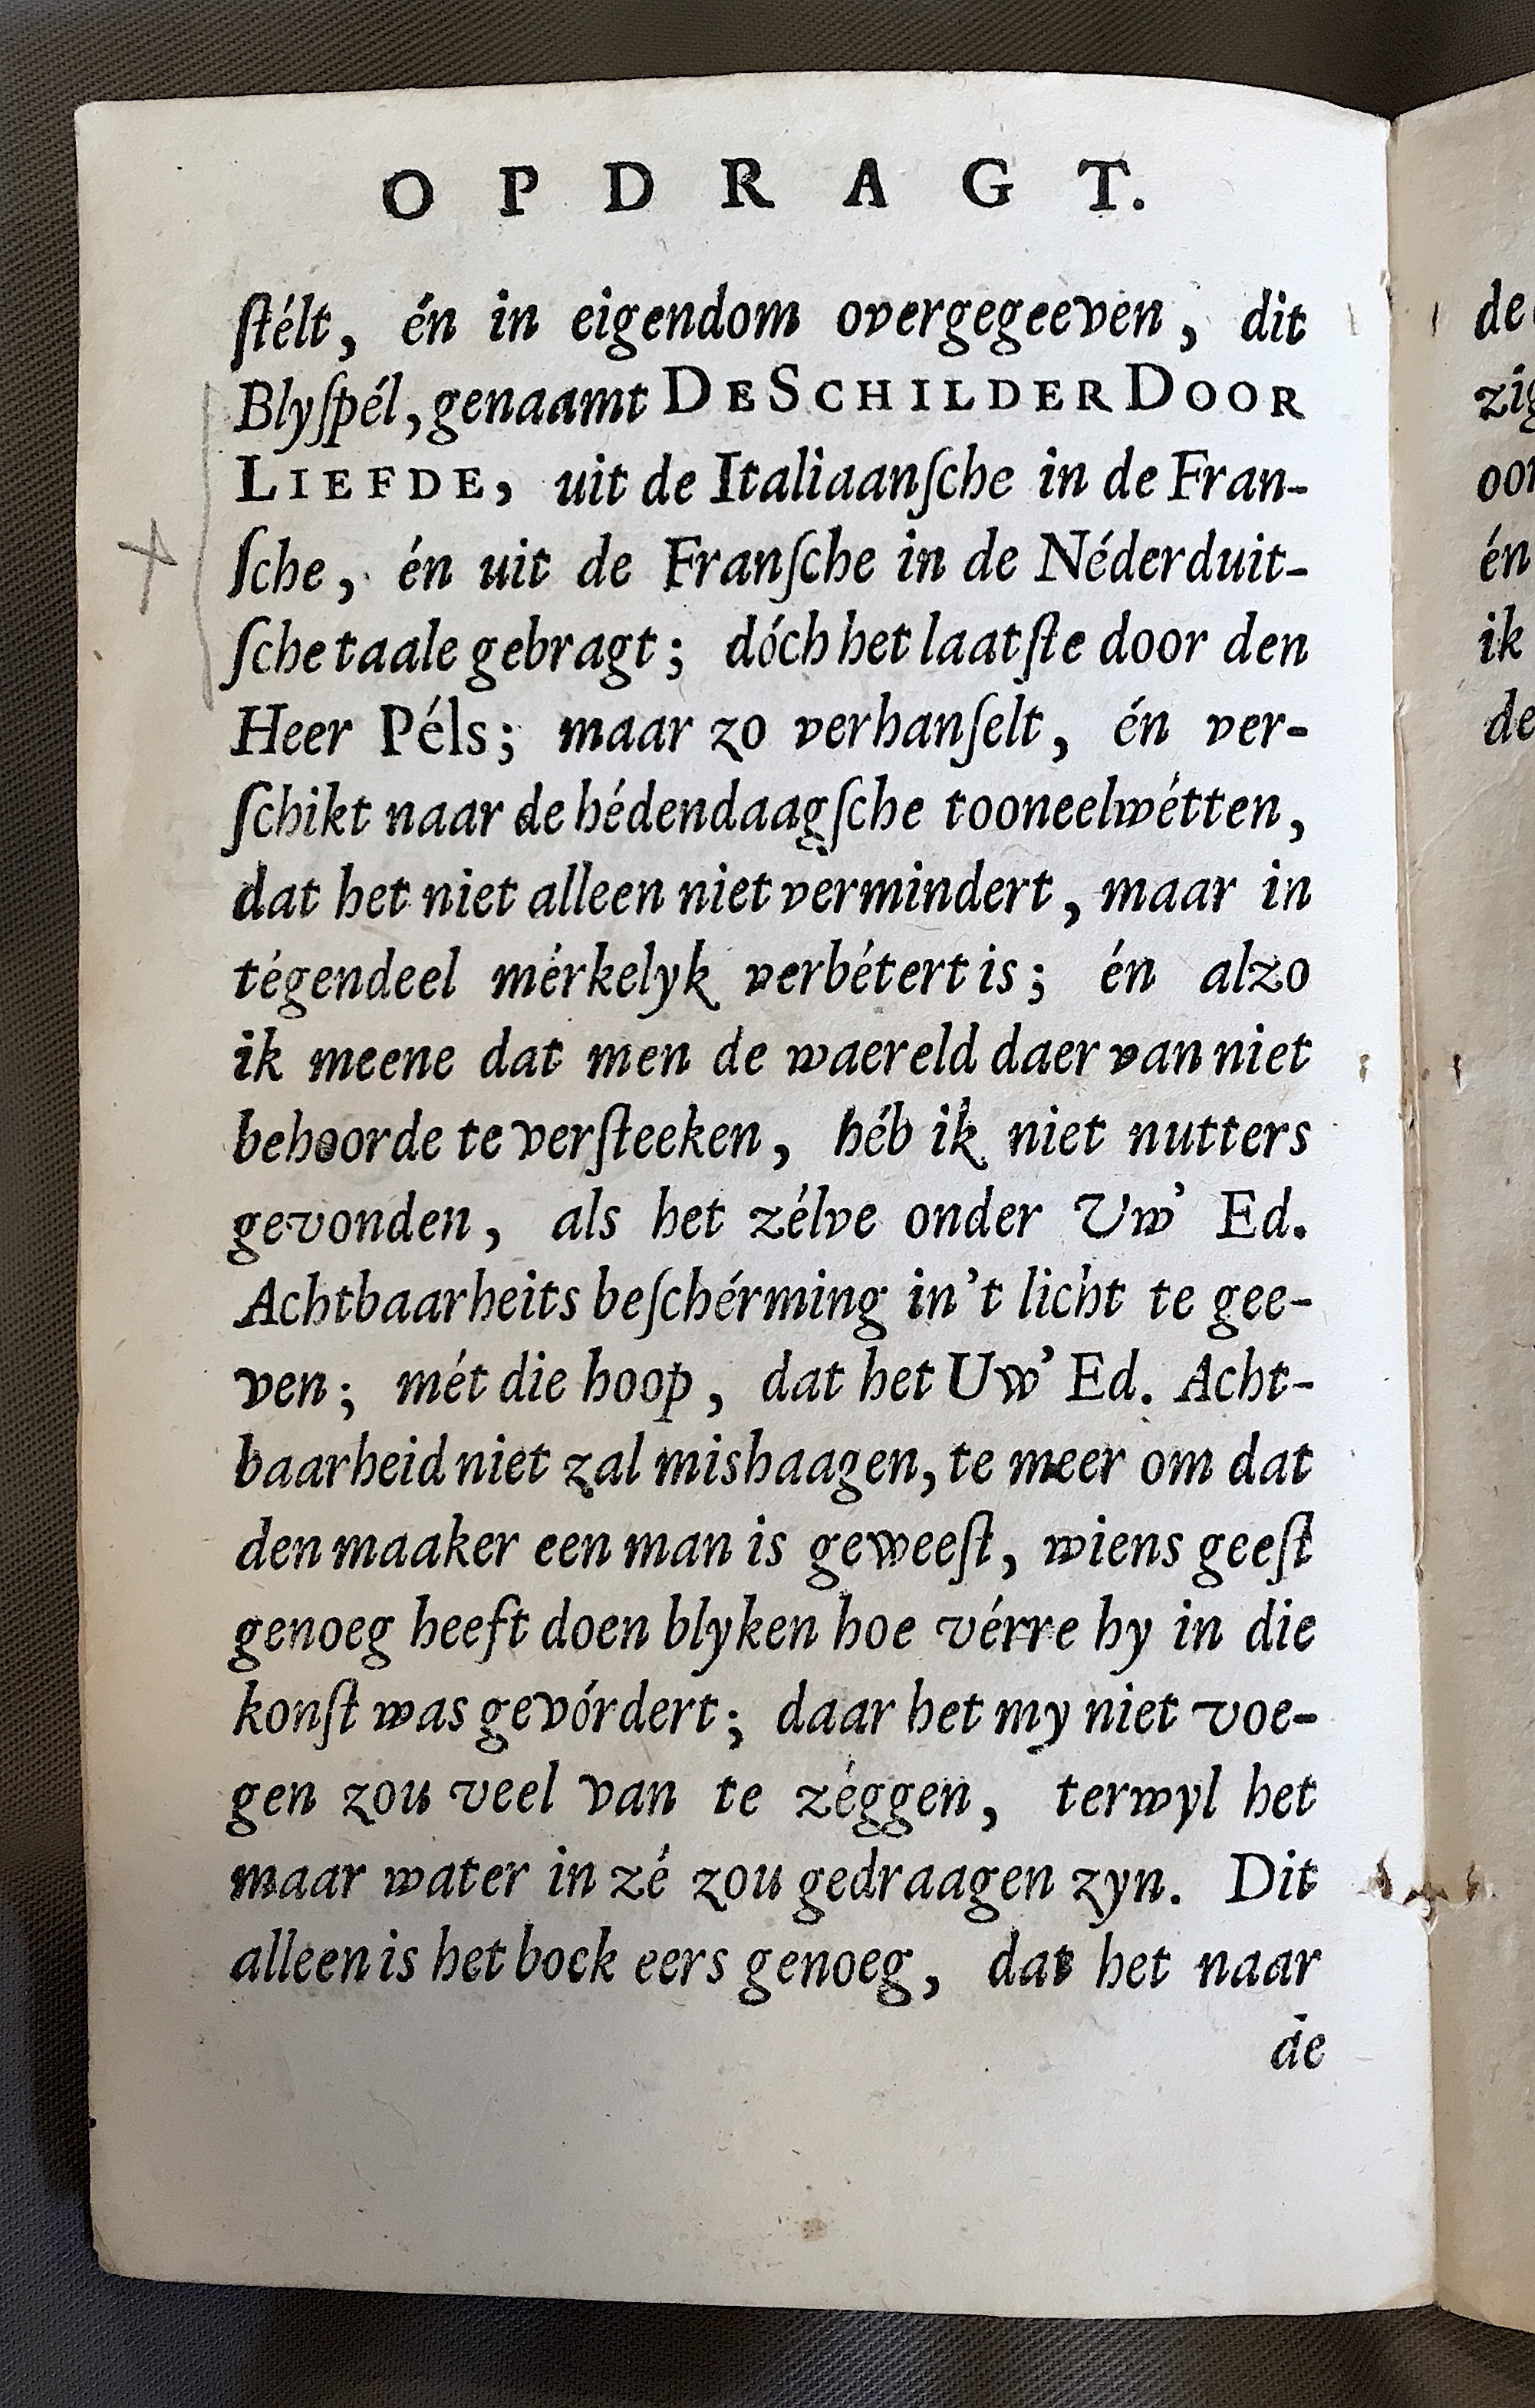 OPDRAGT.
ſtélt, én in eigendom overgegeeven, dit
Blyſpél, genaamt DE SCHILDER DOOR
LIEFDE, uit de Italiaanſche in de Fran-
ſche, én uit de Franſche in de Néderduit-
ſche taale gebragt; dóch het laatſte door den
Heer Péls; maar zo verhanſelt, én ver-
ſchikt naar de hédendaagſche tooneelwétten,
dat het niet alleen niet vermindert, maar in
tégendeel mérkelyk verbétert is; én alzo
ik meene dat men de waereld daer van niet
behoorde te verſteeken, héb ik niet nutters
gevonden, als het zélve onder Uw' Ed.
Achtbaarheits beſchérming in't licht te gee-
ven; mét die hoop, dat het Uw' Ed. Acht-
baarheid niet zal mishaagen, te meer om dat
den maaker een man is geweeſt, wiens geeſt
genoeg heeft doen blyken hoe vérre hy in die
konſt was gevórdert; daar het my niet voe-
gen zou veel van te zéggen, terwyl het
maar water in zé zou gedraagen zyn. Dit
alleen is het bock eers genoeg, dat het naar
de
de
zig
én
ik
de